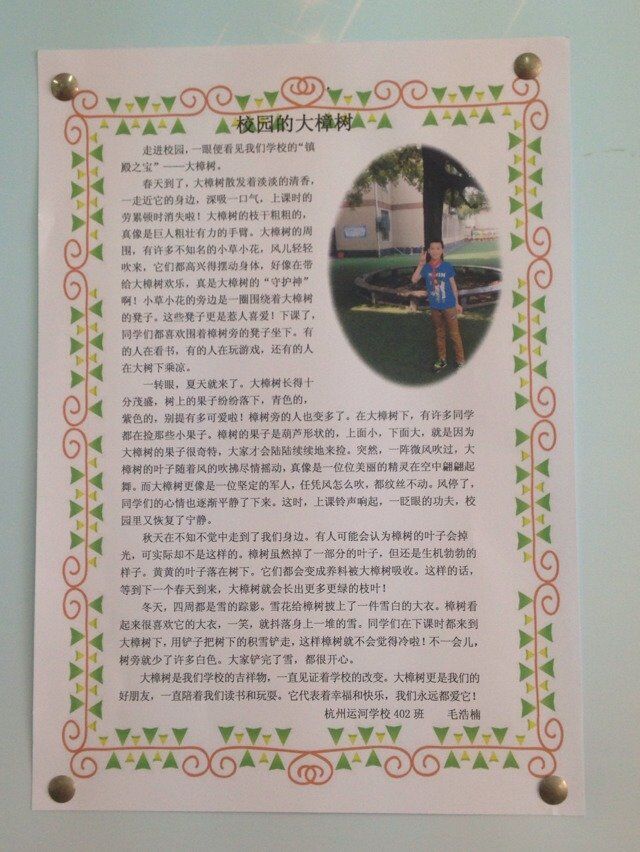 校园的大樟树
走进校园，一眼便看见我们学校的“镇
殿之宝”——大樟树。
春天到了，大樟树散发着淡淡的清香，
一走近它的身边，深吸一口气，上课时的
劳累顿时消失啦！大樟树的枝干粗粗的，
真像是巨人粗壮有力的手臂。大樟树的周
围，有许多不知名的小草小花，风儿轻轻
吹来，它们都高兴得摆动身体，好像在带
给大樟树欢乐，真是大樟树的“守护神”
啊！小草小花的旁边是一圈围绕着大樟树
的凳子。这些凳子更是惹人喜爱！下课了，
同学们都喜欢围着樟树旁的凳子坐下。有
的人在看书，有的人在玩游戏，还有的人
在大树下乘凉。
一转眼，夏天就来了。大樟树长得十
分茂盛，树上的果子纷纷落下，青色的，
紫色的，别提有多可爱啦！樟树旁的人也变多了。在大樟树下，有许多同学
都在捡那些小果子。樟树的果子是葫芦形状的，上面小，下面大，就是因为
大樟树的果子很奇特，大家才会陆陆续续地来捡。突然，一阵微风吹过，大
樟树的叶子随着风的吹拂尽情摇动，真像是一位位美丽的精灵在空中翩翩起
舞。而大樟树更像是一位坚定的军人，任凭风怎么吹，都纹丝不动。风停了，
同学们的心情也逐渐平静了下来。这时，上课铃声响起，一眨眼的功夫，校
园里又恢复了宁静。
秋天在不知不觉中走到了我们身边。有人可能会认为樟树的叶子会掉
光，可实际却不是这样的。樟树虽然掉了一部分的叶子，但还是生机勃勃的
样子。黄黄的叶子落在树下。它们都会变成养料被大樟树吸收。这样的话，
等到下一个春天到来，大樟树就会长出更多更绿的枝叶！
冬天，四周都是雪的踪影。雪花给樟树披上了一件雪白的大衣。樟树看
起来很喜欢它的大衣，一笑，就抖落身上一堆的雪。同学们在下课时都来到
大樟树下，用铲子把树下的积雪铲走，这样樟树就不会觉得冷啦！不一会儿，
树旁就少了许多白色。大家铲完了雪，都很开心。
大樟树是我们学校的吉祥物，一直见证着学校的改变。大樟树更是我们的
好朋友，一直陪着我们读书和玩耍。它代表着幸福和快乐，我们永远都爱它！
杭州运河学校 402 班 毛浩楠